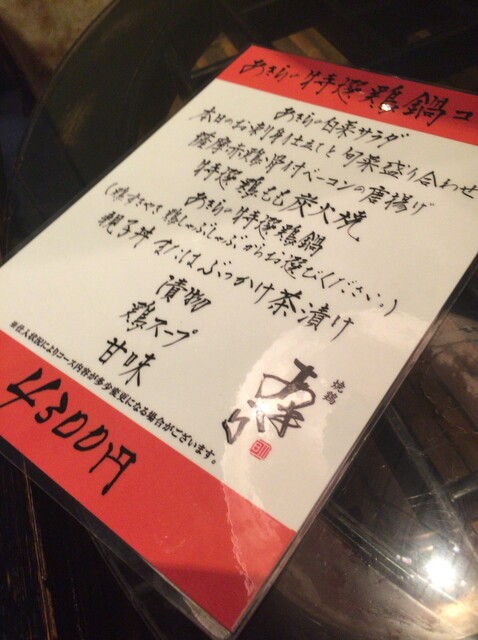 あきらの特選鶏鍋コ
あきらの白菜サラダ
本日のお刺身仕立てと旬菜盛り合わせ
薩摩赤鶏骨付ベーコンの唐揚げ
特選鶏もも炭火焼
あきらの特選鶏鍋
(鶏すきやき 鶏しゃぶしゃぶからお選びください。)
親子丼またはぶっかけ茶漬け
漬物
鶏スープ
甘味
※仕入状況によりコース内容が多少変更になる場合がございます。
4300円
焼鶏